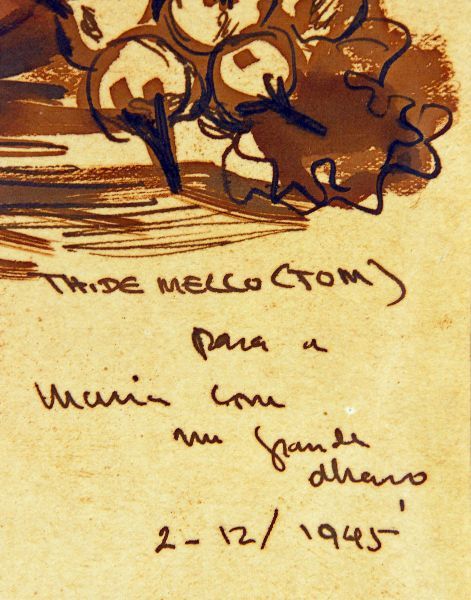 TH.DE MELLO (TOM)
para a
Maria com
um grande
abraço
2-12/1945